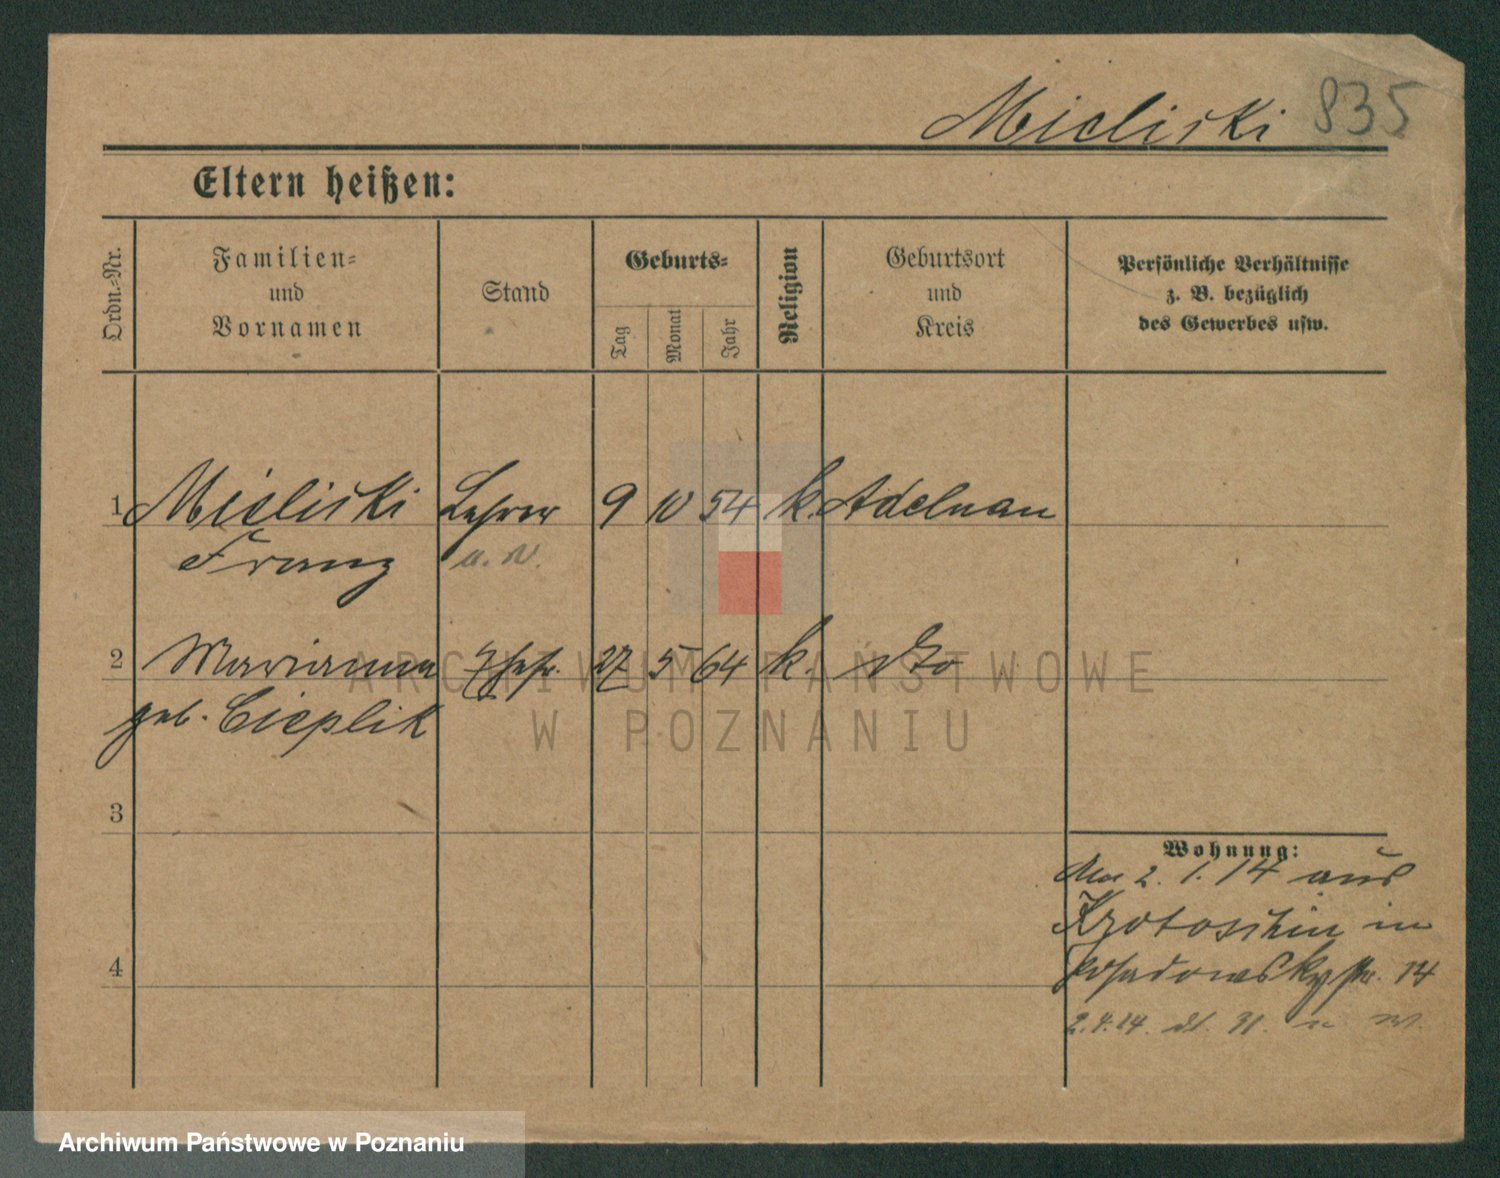 Mieliski 835
Eltern heißen:
Ordn.-Nr.
Familien-
und
Vornamen
Stand
Geburts-
Tag
Monat
Jahr
Religion
Geburtsort
und
Kreis
Persönliche Verhältnisse
z. B. bezüglich
des Gewerbes usw.
1 Mieliski Lehrer 9 10 54 k. Adelnau
Franz a. D.
2 Marianna Ehefr. 27 5 64 k. dto
geb. Cieplik
3
4
Wohnung:
2. 1. 14 aus
Krotoschin in
Posadowskystr. 14
2.4.14.
ARCHIWUM PAŃSTWOWE
W POZNANIU
Archiwum Państwowe w Poznaniu